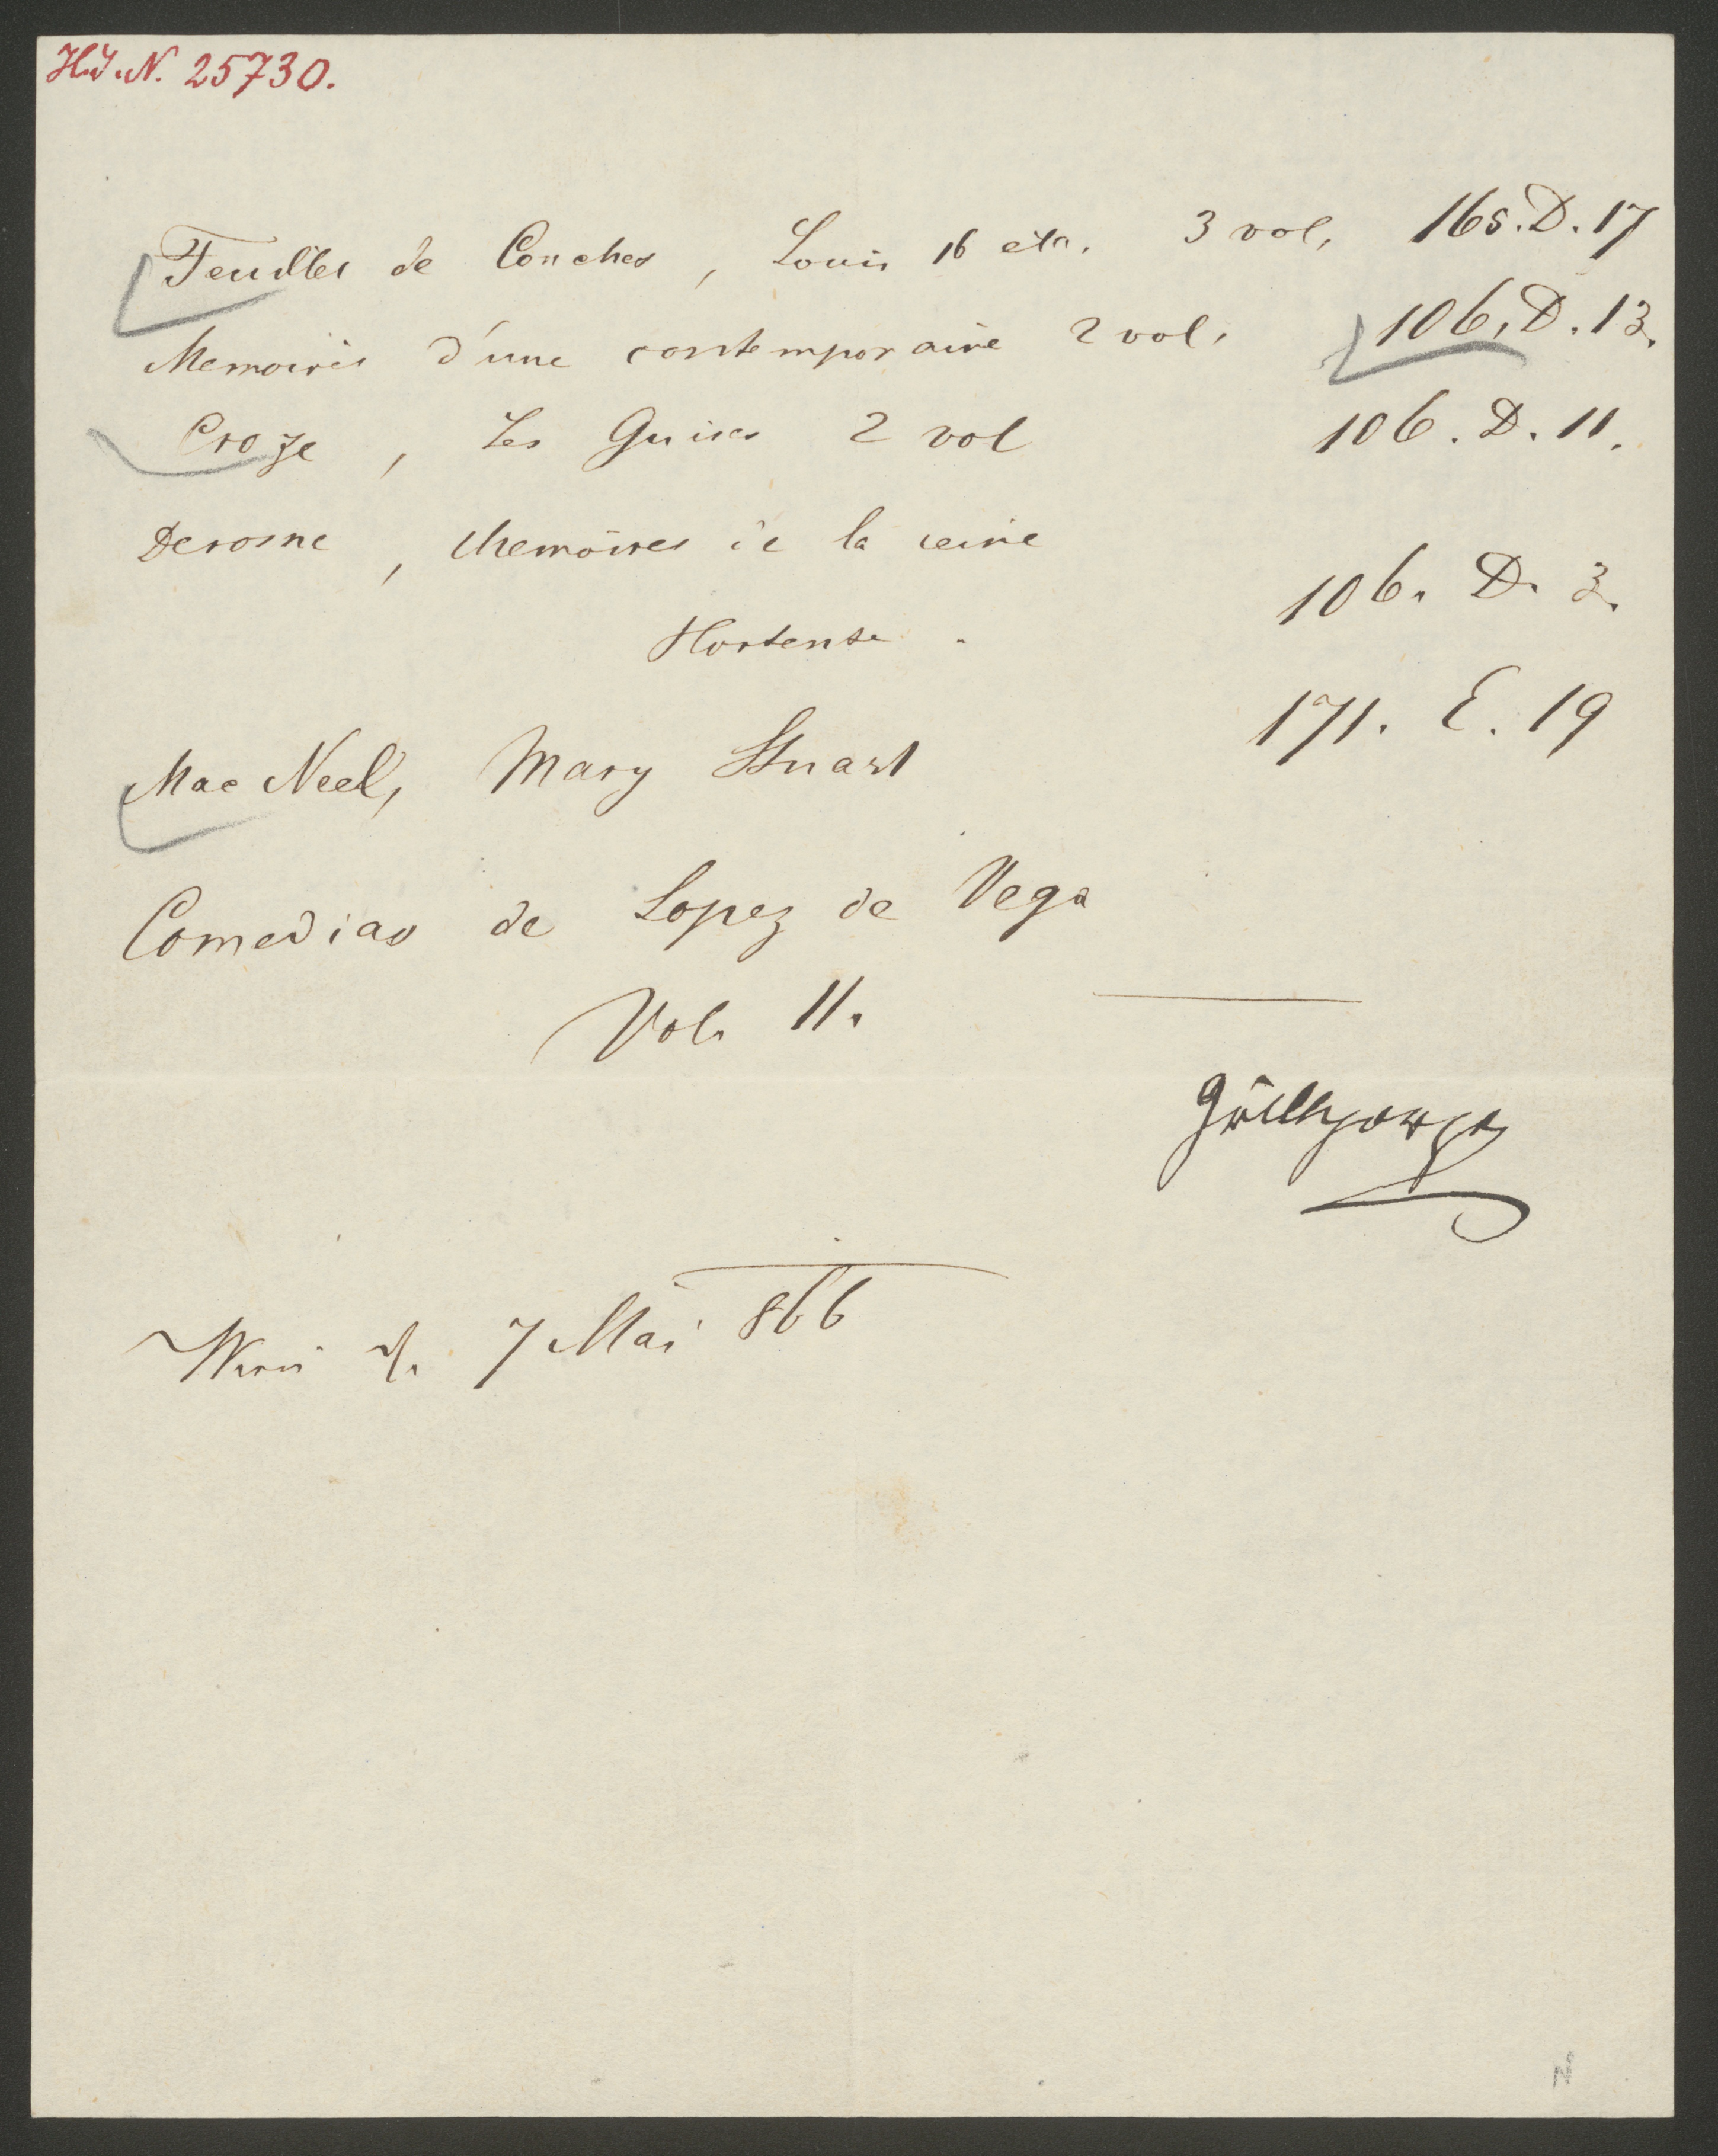 H.I.N. 25730.
Feuilles de Conches, Louis 16 etc. 3 vol, 165.D.17
Memoires d'une contemporaine 2 vol. 106.D.13.
Croze, Les Guises 2 vol 106.D.11.
Derosne, Memoires de la reine
Hortense. 106. D. 3.
Mac Neel, Mary Stuart 171. E. 19
Comedias de Lopez de Vega
Vol. 11.
Grillparzer
Wien d. 7 Mai 866
N